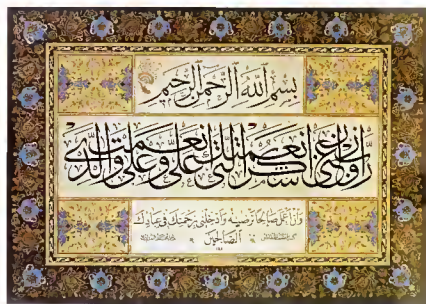 بِسْمِ اللهِ الرَّحْمٰنِ الرَّحِيمِ
رَبِّ أَوْزِعْنِي أَنْ أَشْكُرَ نِعْمَتَكَ الَّتِي أَنْعَمْتَ عَلَيَّ وَعَلَى وَالِدَيَّ
وَأَنْ أَعْمَلَ صَالِحًا تَرْضَاهُ وَأَدْخِلْنِي بِرَحْمَتِكَ فِي عِبَادِكَ
الصَّالِحِينَ